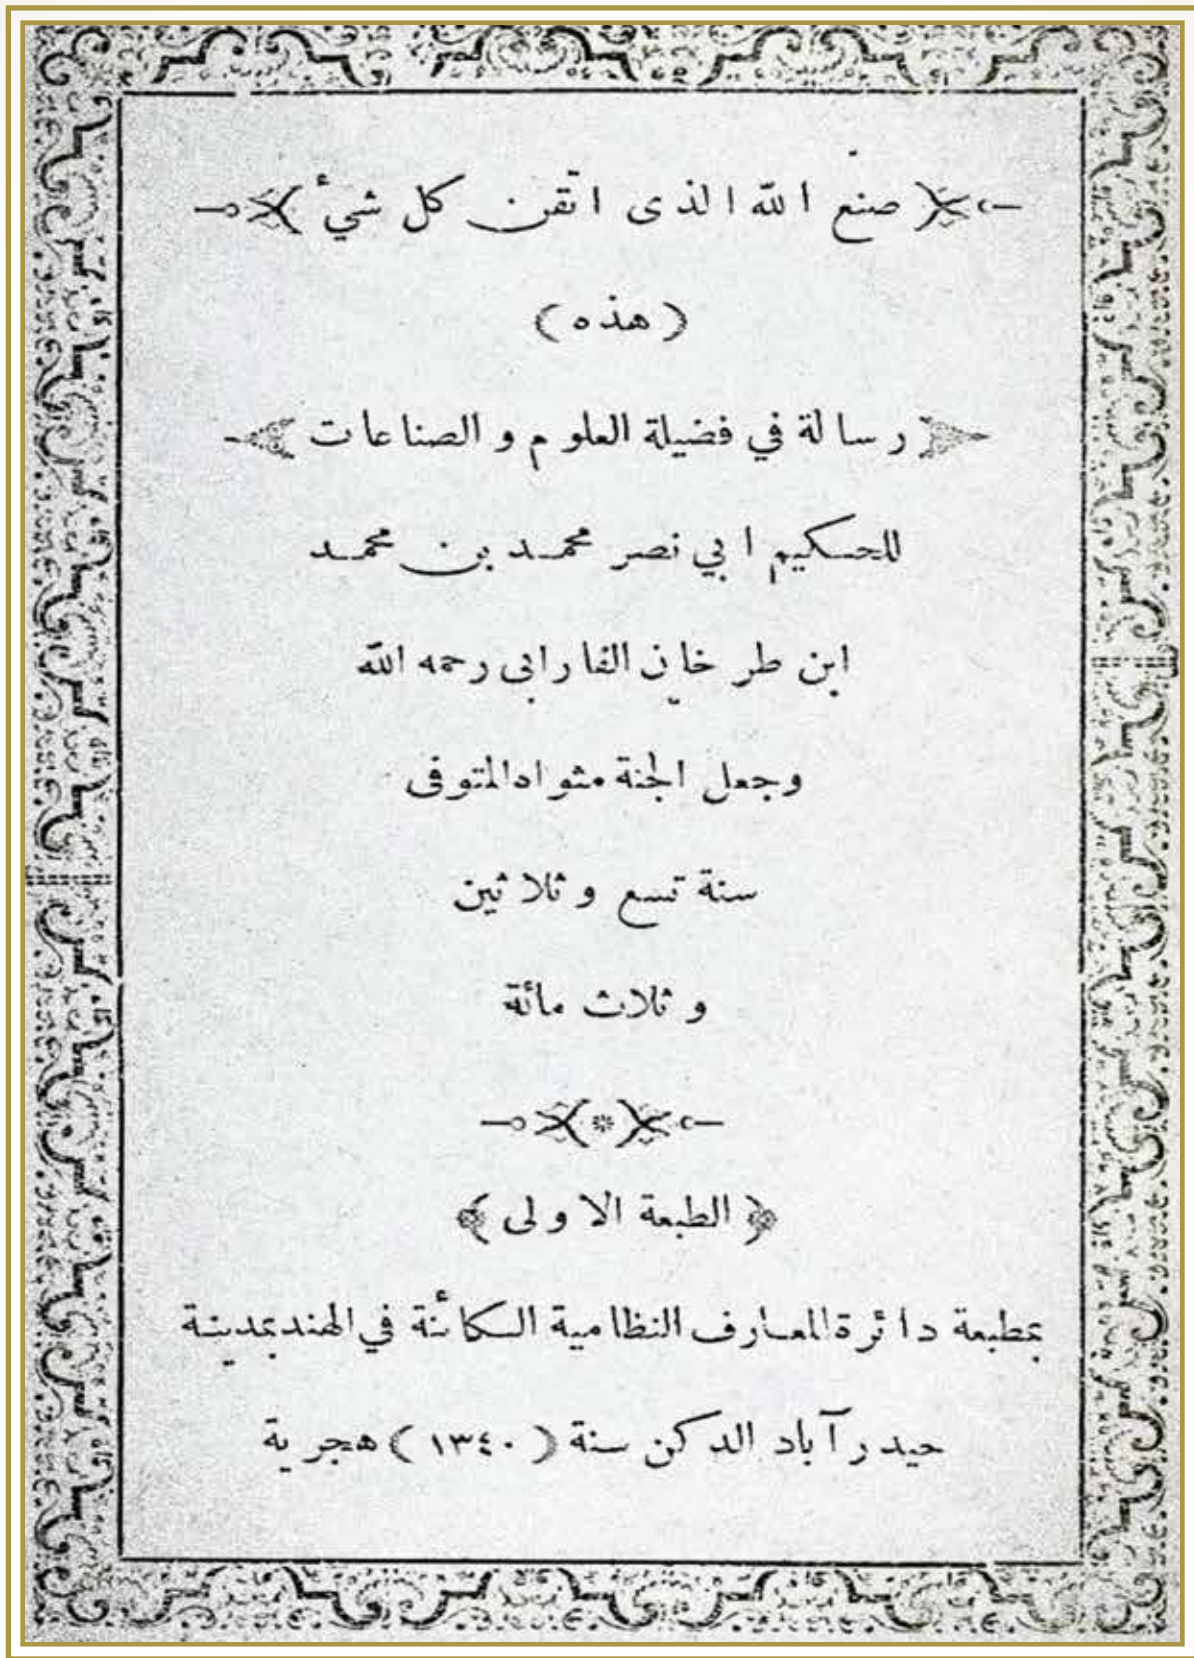 صنع الله الذى اتقن كل شئ
(هذه)
رسالة في فضيلة العلوم و الصناعات
للحكيم ابي نصر محمد بن محمد
ابن طرخان الفارابى رحمه الله
وجعل الجنة مثواه المتوفى
سنة تسع و ثلاثين
و ثلاث مائة
الطبعة الاولى
بمطبعة دائرة المعارف النظامية الكائنة في الهند بمدينة
حيدر آباد الدكن سنة (١٣٤٠) هجرية